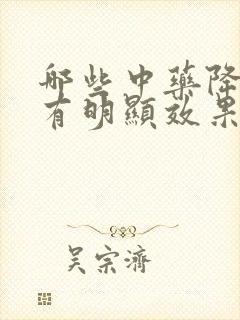 哪些中藥降
有明顯效果
吳宗濟